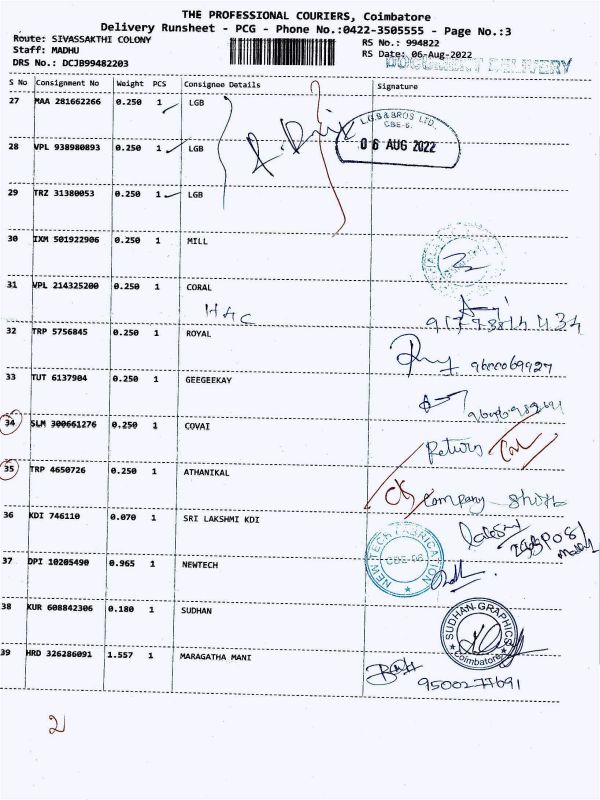 THE PROFESSIONAL COURIERS, Coimbatore
Delivery Runsheet - PCG - Phone No.:0422-3505555 - Page No.:3
Route: SIVASSAKTHI COLONY
Staff: MADHU
DRS No.: DCJB99482203
RS No.: 994822
RS Date: 06-Aug-2022
DOCUMENT DELIVERY
S No Consignment No Weight PCS Consignee Details Signature
27 MAA 281662266 0.250 1 LGB
L.G.B & BROS LTD.
CBE-6.
06 AUG 2022
28 VPL 938980893 0.250 1 LGB
29 TRZ 31380053 0.250 1 LGB
30 IXM 501922906 0.250 1 MILL
31 VPL 214325200 0.250 1 CORAL
32 TRP 5756845 0.250 1 ROYAL
9600069927
33 TUT 6137904 0.250 1 GEEGEEKAY
34 SLM 300661276 0.250 1 COVAI
Return
35 TRP 4650726 0.250 1 ATHANIKAL
Company Shift
36 KDI 746110 0.070 1 SRI LAKSHMI KDI
37 DPI 10205490 0.965 1 NEWTECH
NEWTECH FABRICATION
CBE-06
38 KUR 608842306 0.180 1 SUDHAN
SUDHAN GRAPHICS
Coimbatore
39 HRD 326286091 1.557 1 MARAGATHA MANI
9500277691
2